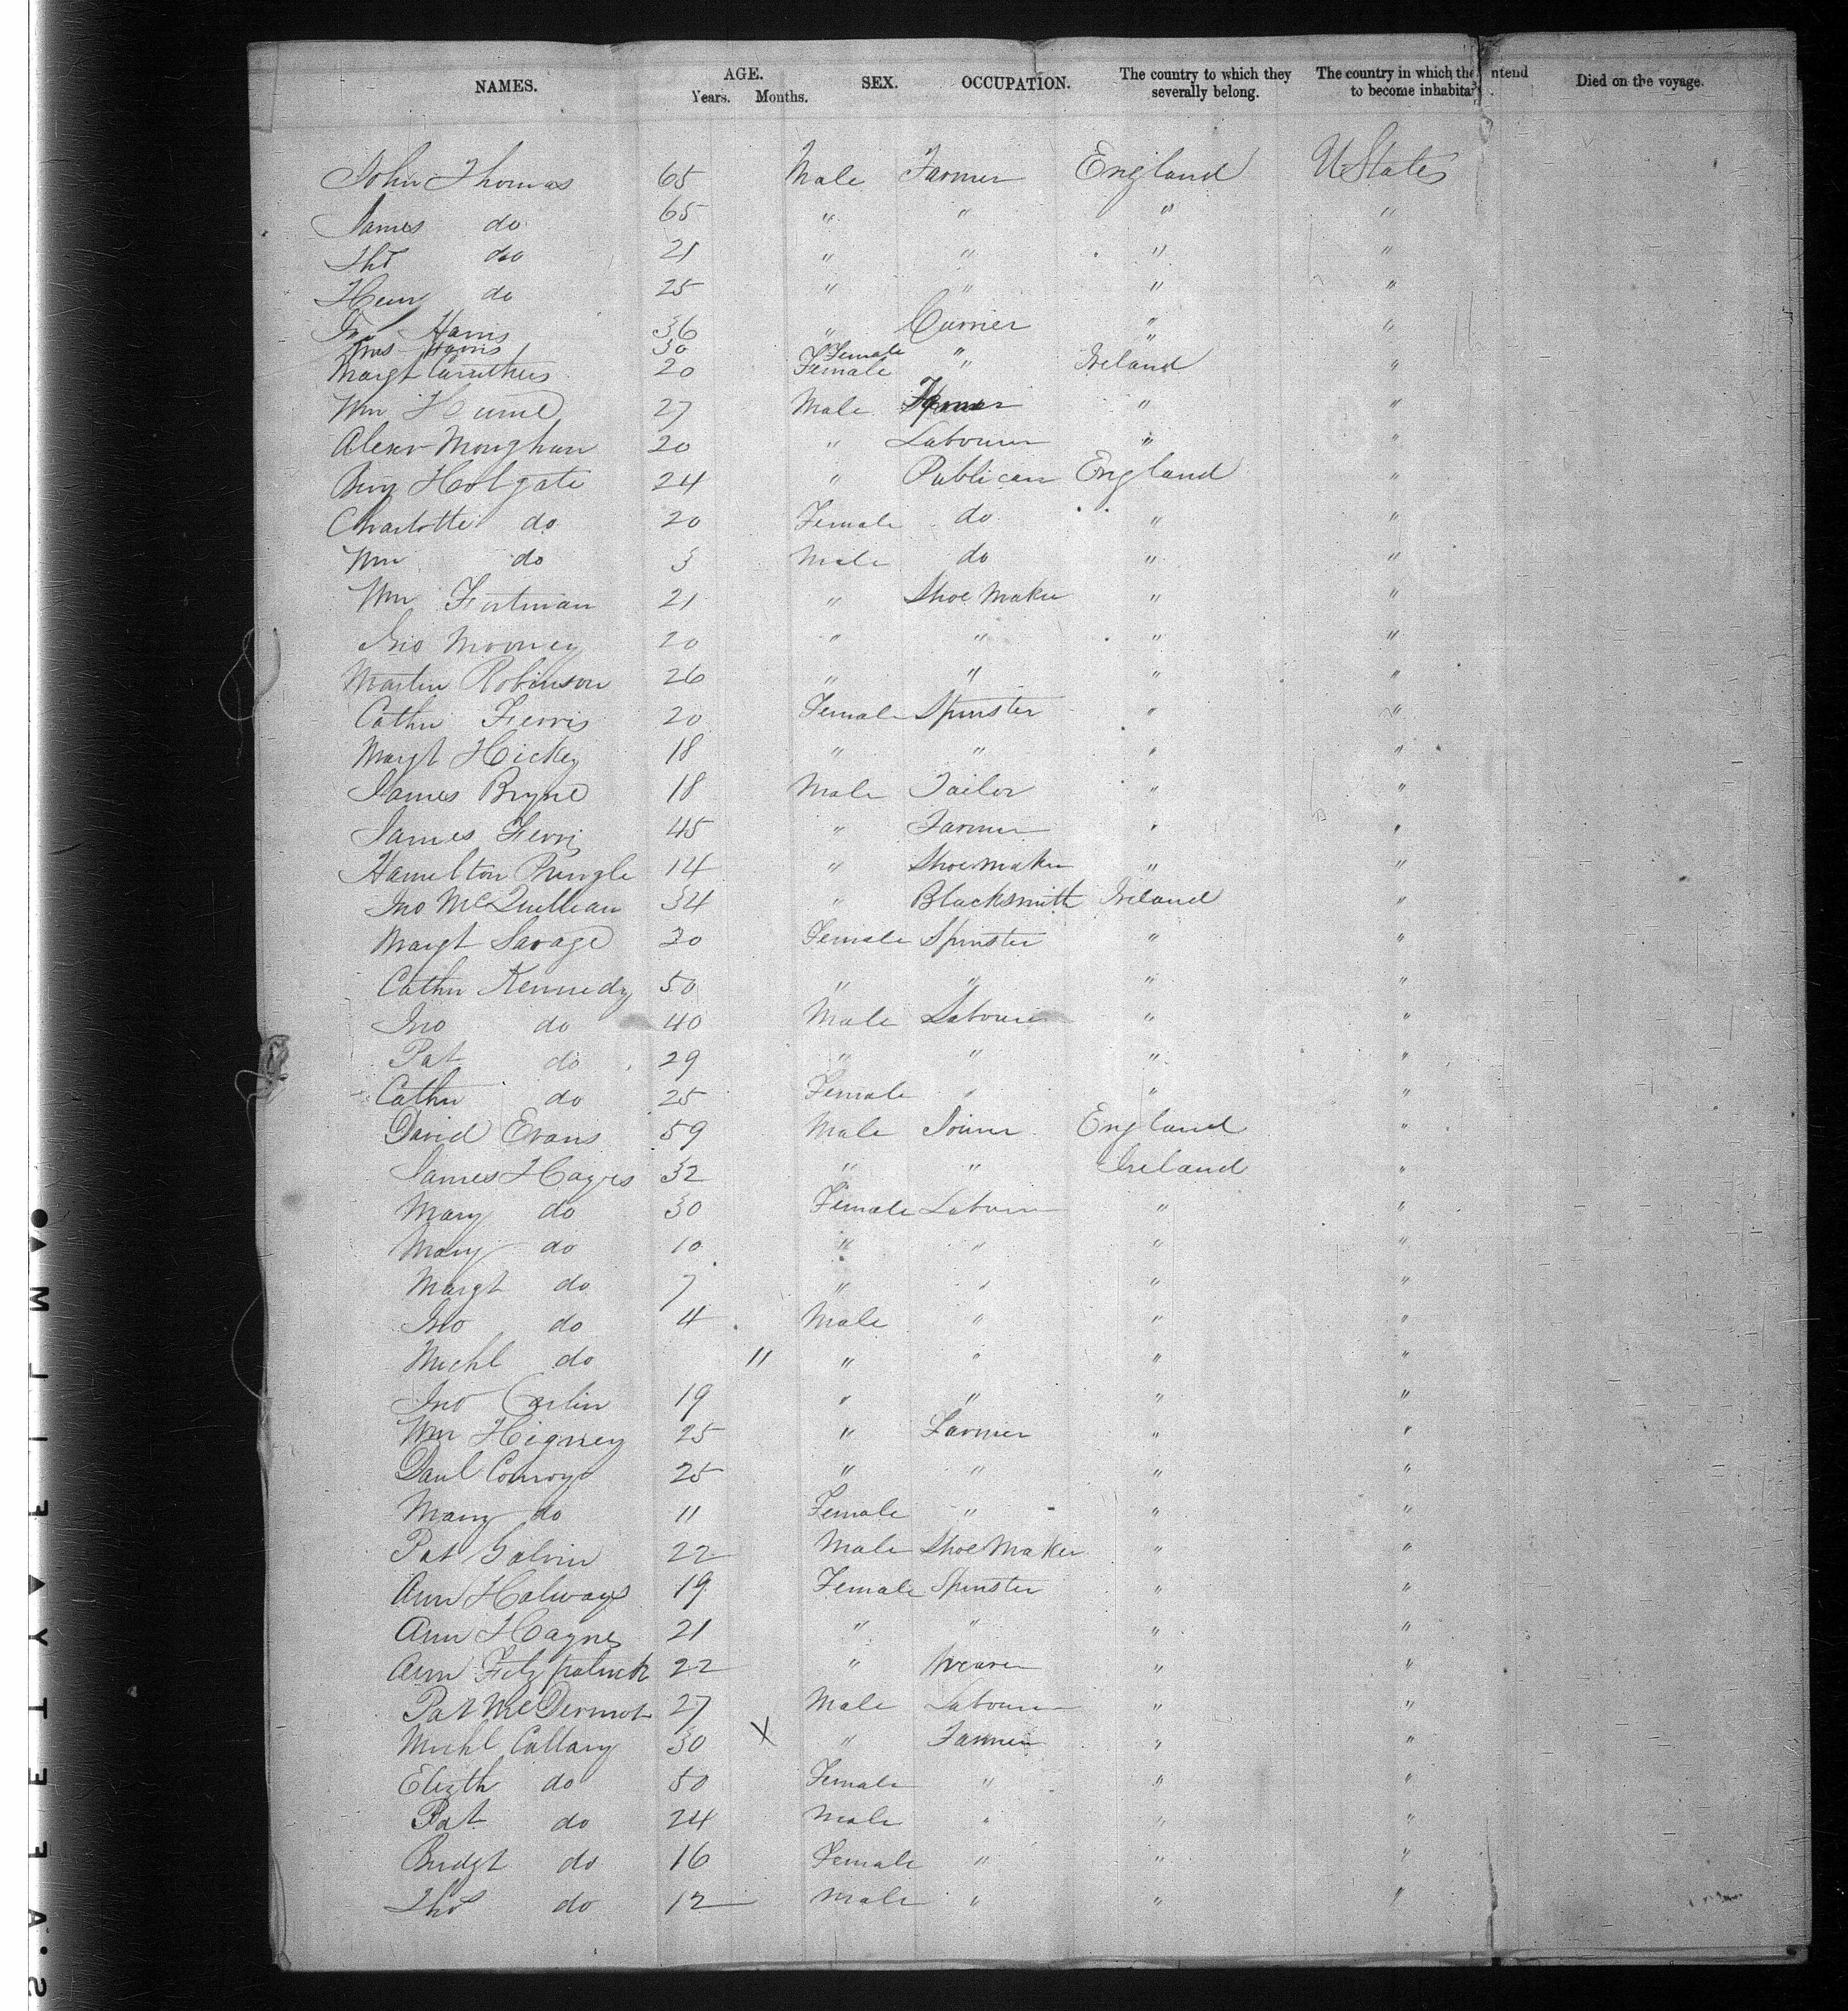 NAMES. AGE. Years. Months. SEX. OCCUPATION. The country to which they severally belong. The country in which they intend to become inhabita . Died on the voyage.
John Thomas 65 Male Farmer England U States
James do 65 " " " "
Thos do 21 " " " "
Henry do 25 " " " "
Harris 36 " Currier " "
Mrs Harris 30 Female " "
Margt Caruthers 20 Female " Ireland "
Wm Hume 27 Male Farmer " "
Alexr Monghan 20 " Labourer " "
Benj Holgate 24 " Publican England "
Charlotte do 20 Female do " "
Wm do 3 Male do " "
Wm Fortman 21 " Shoe Maker " "
Jno Mooney 20 " " " "
Martin Robinson 26 " " " "
Cathn Ferris 20 Female Spinster " "
Margt Hickey 18 " " " "
James Bryne 18 Male Tailor " "
James Ferris 45 " Farmer " "
Hamelton Pringle 14 " Shoemaker " "
Jno McQuillian 34 " Blacksmith Ireland "
Margt Savage 20 Female Spinster " "
Cathn Kennedy 50 " " " "
Jno do 40 Male Labourer " "
Pat do 29 " " " "
Cathn do 25 Female " " "
David Evans 59 Male Joiner England "
James Hayes 32 " " Ireland "
Mary do 30 Female Labourer " "
Mary do 10 " " " "
Margt do 7 " " " "
Jno do 4 Male " " "
Michl do 11 " " " "
Jno Carlin 19 " " " "
Wm Higney 25 " Farmer " "
Danl Conroy 25 " " " "
Mary do 11 Female " " "
Pat Galvin 22 Male Shoe Maker " "
Ann Halways 19 Female Spinster " "
Ann Haynes 21 " " " "
Ann Fitzpatrick 22 " Weaver " "
Pat McDermot 27 Male Labourer " "
Michl Callary 30 X " Farmer " "
Elizth do 50 Female " " "
Pat do 24 Male " " "
Bridgt do 16 Female " " "
Thos do 12 Male " " "